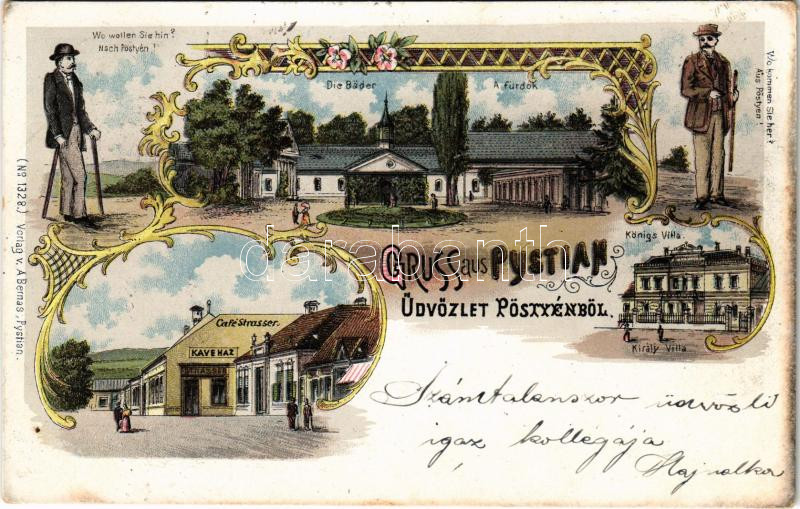 Wo wollen Sie hin?
Nach Pöstyén!
Die Bäder
A fürdök
Wo kommen Sie her?
Aus Pöstyen!
(No 1328.) Verlag v. A. Bernas, Pystian.
Königs Villa.
Király Villa
GRUSS aus PYSTIAN
ÜDVÖZLET PÖSTYÉNBŐL.
Café Strasser.
KAVEHAZ
STRASSER
darabanth.com
Számtalanszor üdvözli
igaz kollégája